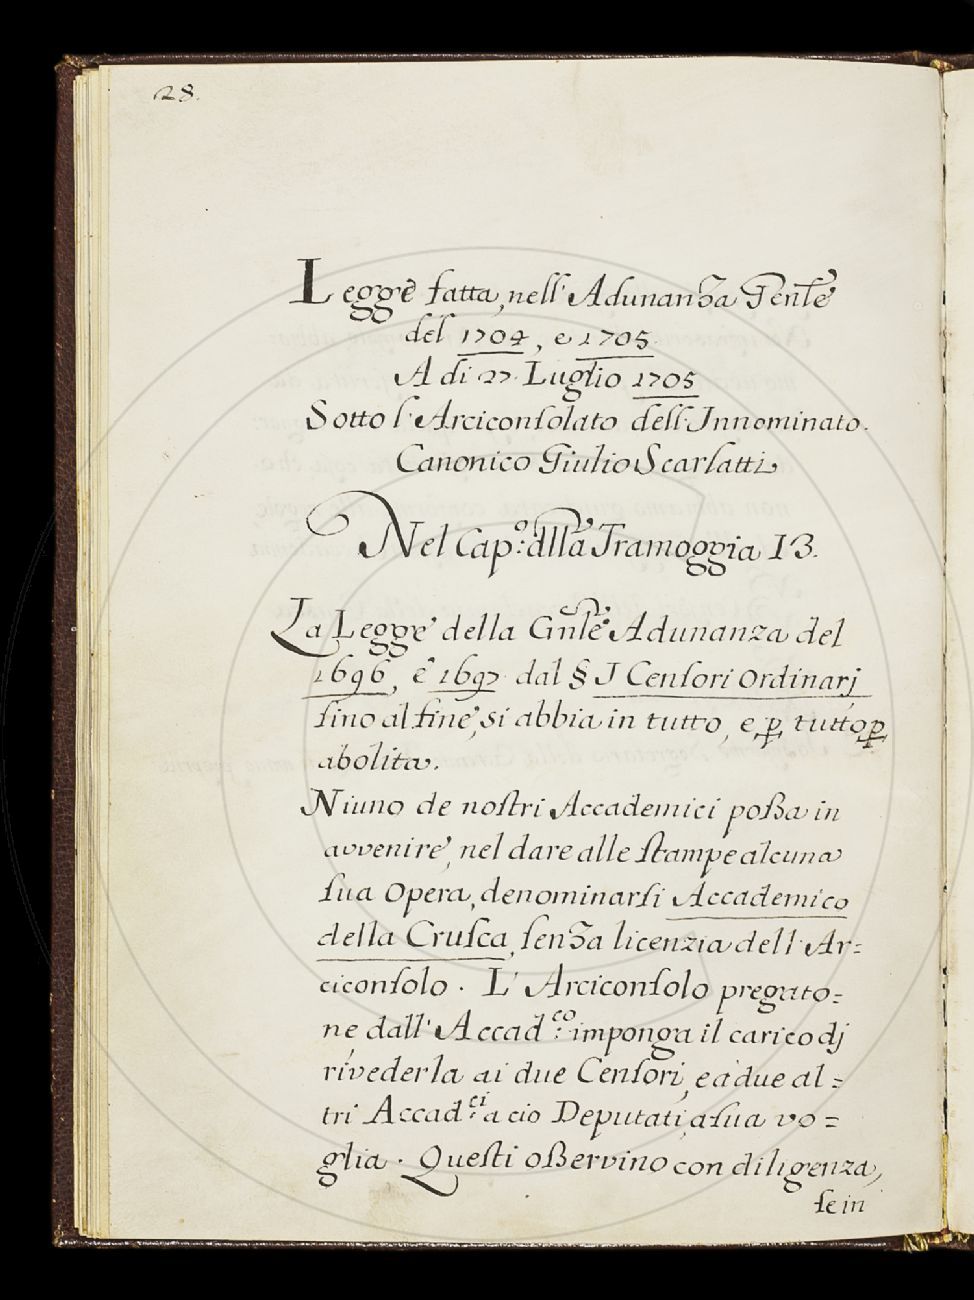 28.
Legge fatta, nell' Adunanza Genle
del 1704, e 1705.
A di 27. Luglio 1705
Sotto l'Arciconsolato dell'Innominato.
Canonico Giulio Scarlatti
Nel Capº: dlla Tramoggia 13.
La Legge della Gnle Adunanza del
1696, e 1697. dal § I Censori Ordinarj
sino al fine, si abbia in tutto, e p tutto
abolita.
Niuno de nostri Accademici possa in
avvenire, nel dare alle stampe alcuna
sua Opera, denominarsi Accademico
della Crusca, senza licenzia dell'Ar=
ciconsolo. L'Arciconsolo pregato=
ne dall'Accad:co imponga il carico dj
rivederla ai due Censori, e à due al=
tri Accad:ci a cio Deputati, a sua vo=
glia. Questi osservino con diligenza,
se in